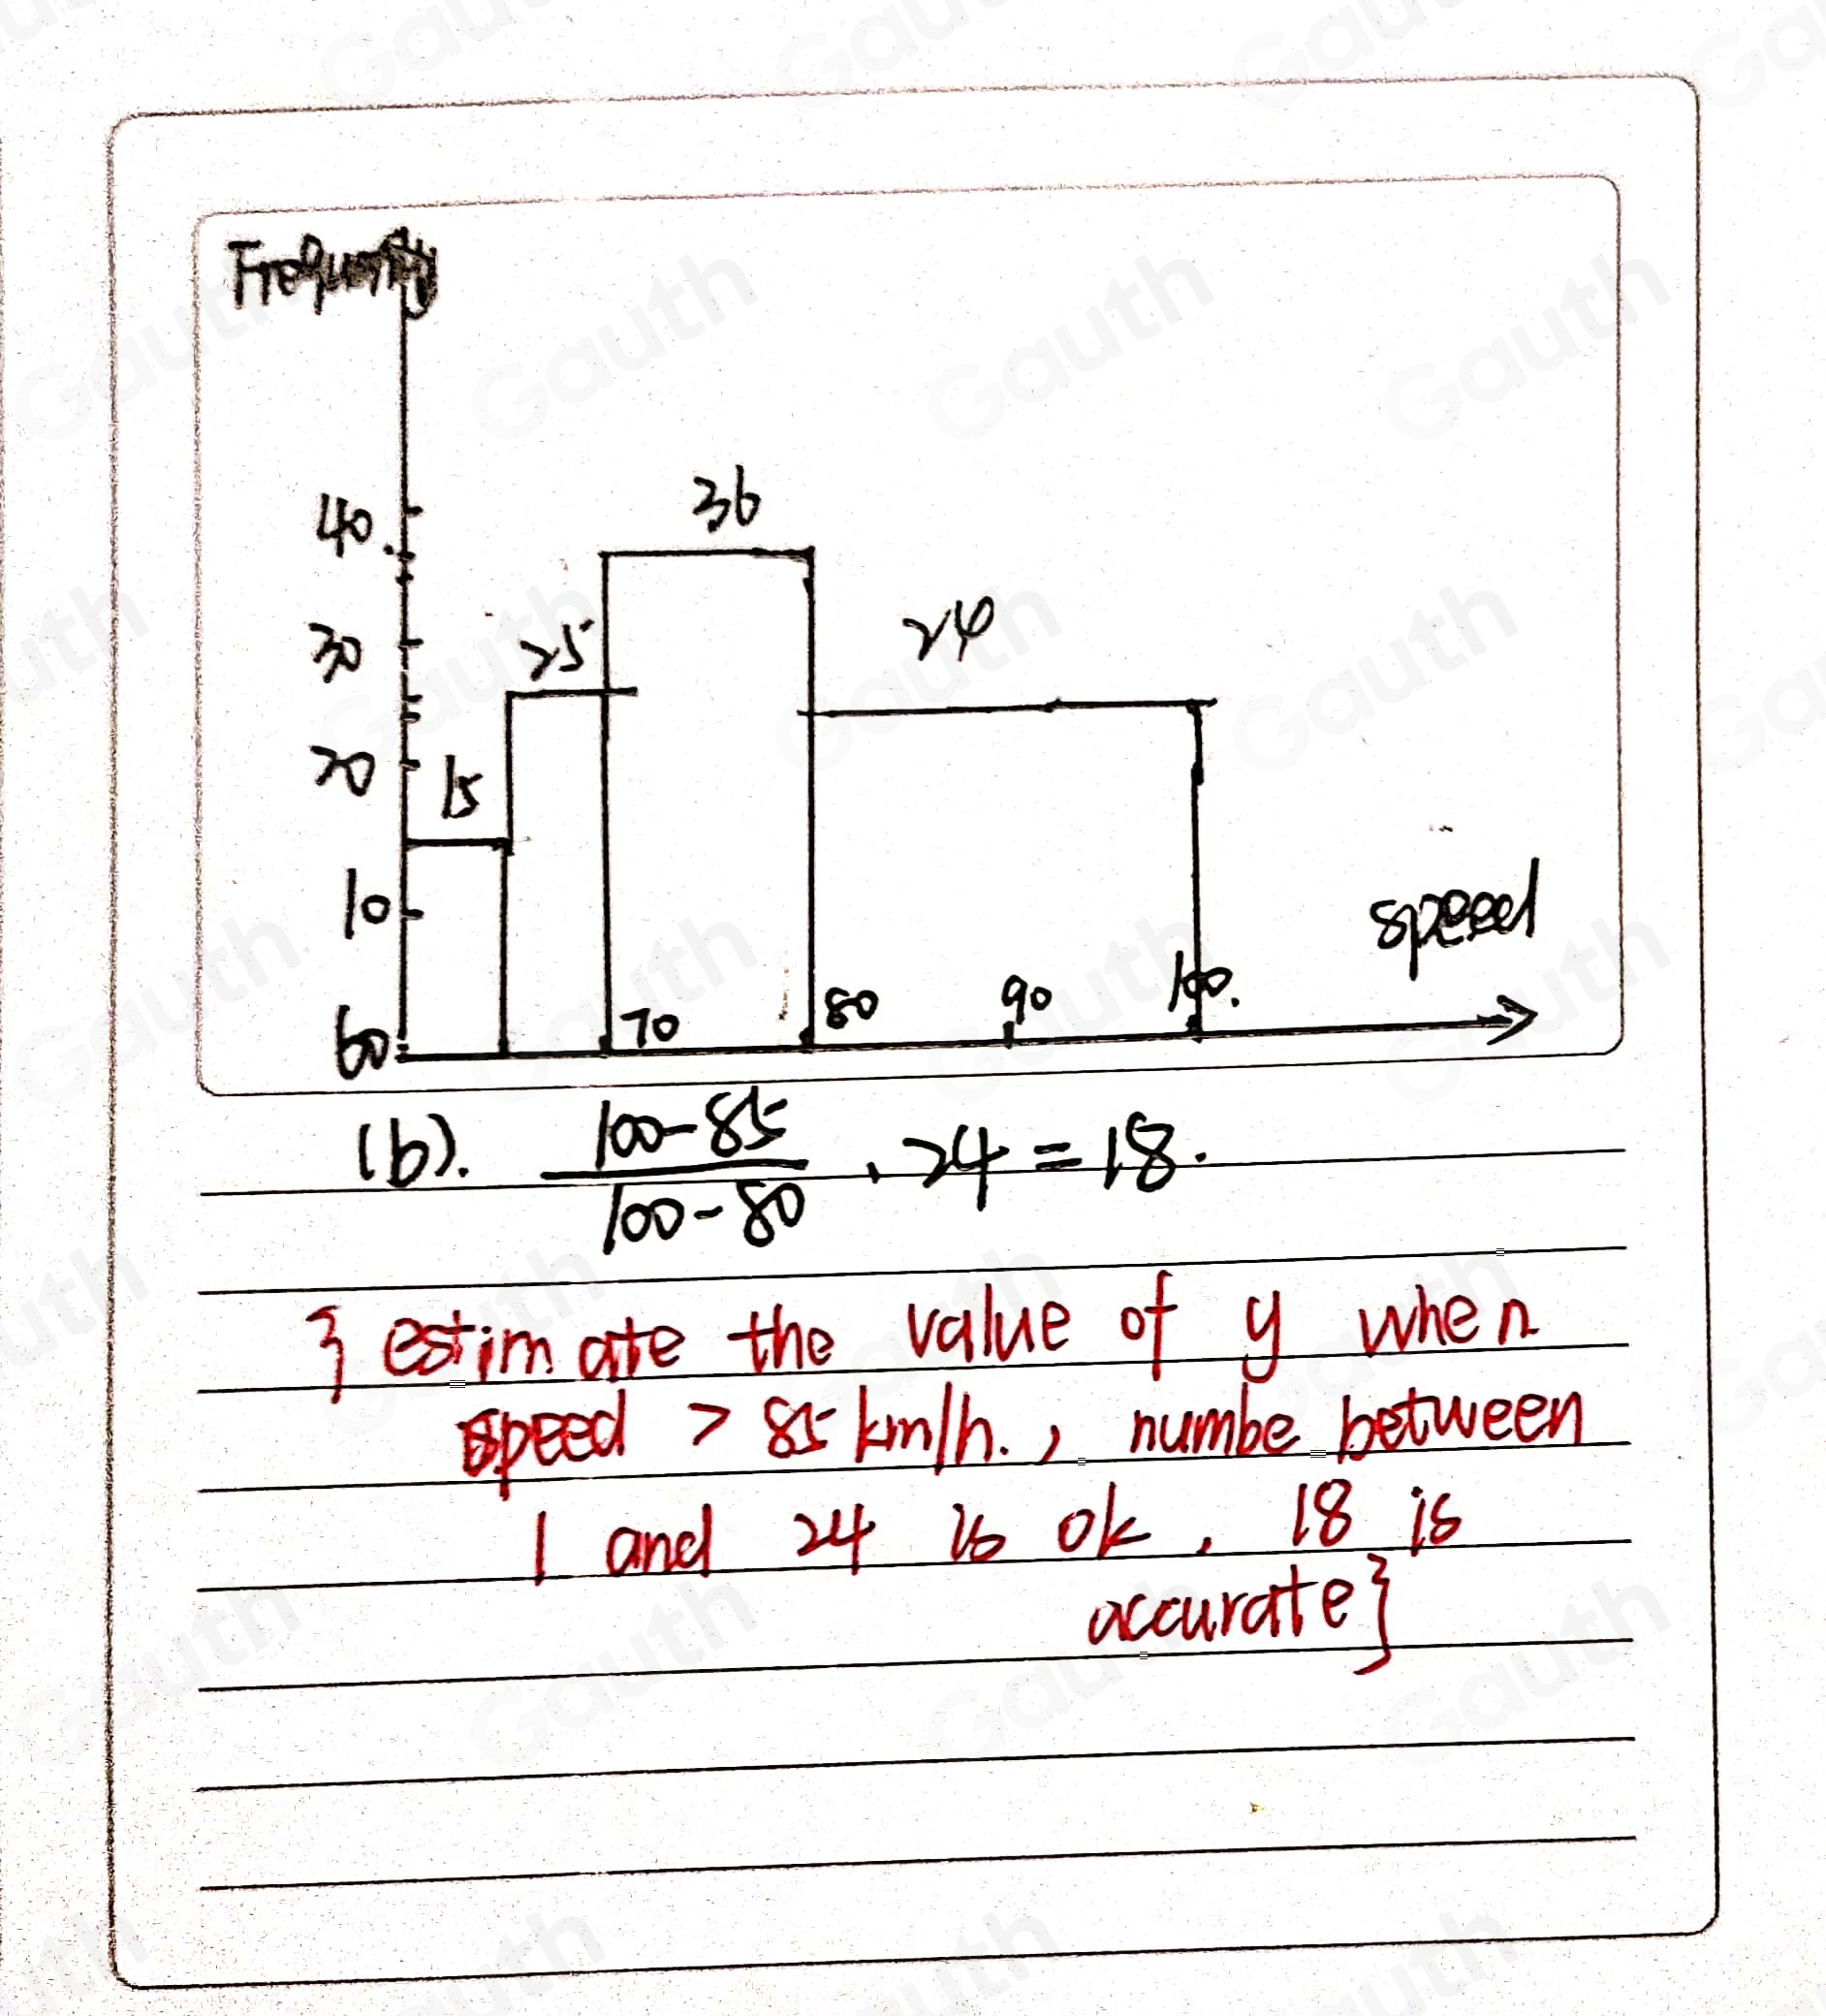 Frequency
40
36
30
25
24
20
15
10
speed
60
70
80
90
100.
(b). 100-85 / 100-80 · 24 = 18.
{ estimate the value of y when
speed > 85 km/h., numbe between
1 and 24 is ok, 18 is
accurate}
Gauth